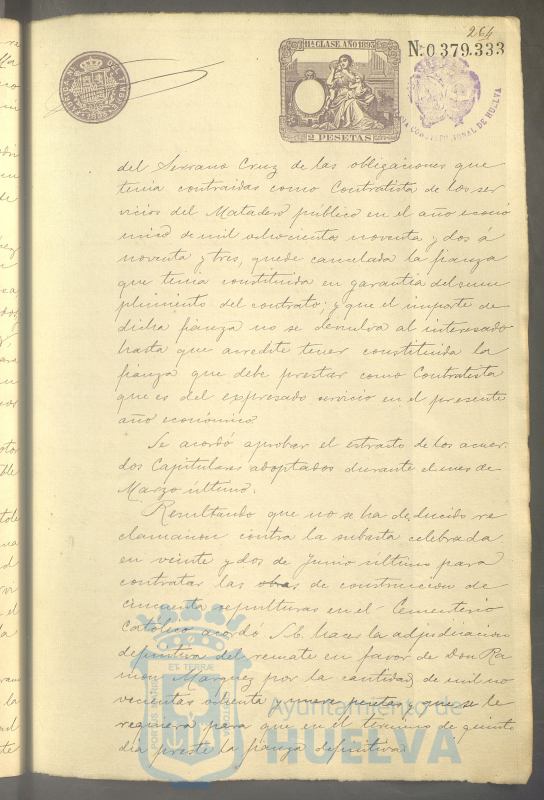 264
11ª CLASE. AÑO 1893
N. 0 379.333
2 PESETAS
del Serrano Cruz de las obligaciones que
tenia contraidas como Contratista de los ser
vicios del Matadero público en el año econó
mico de mil ochocientos noventa y dos á
noventa y tres, quede cancelada la fianza
que tenia constituida en garantia del cum
plimiento del contrato; y que el importe de
dicha fianza no se devuelva al interesado
hasta que acredite tener constituida la
fianza que debe prestar como Contratista
que es del expresado servicio en el presente
año económico.
Se acordó aprobar el estracto de los acuer
dos Capitulares adoptados durante el mes de
Marzo último.
Resultando que no se ha deducido re
clamacion contra la subasta celebrada
en veinte y dos de Junio último para
contratar las obras de construccion de
cincuenta sepulturas en el Cementerio
Católico acordó S.E. hacer la adjudicacion
definitiva del remate en favor de Don Ra
mon Marquez por la cantidad de mil no
vecientas ochenta y nueve pesetas y que se le
requiera para que en el término de quinto
dia preste la fianza definitiva.
Ayuntamiento de
HUELVA